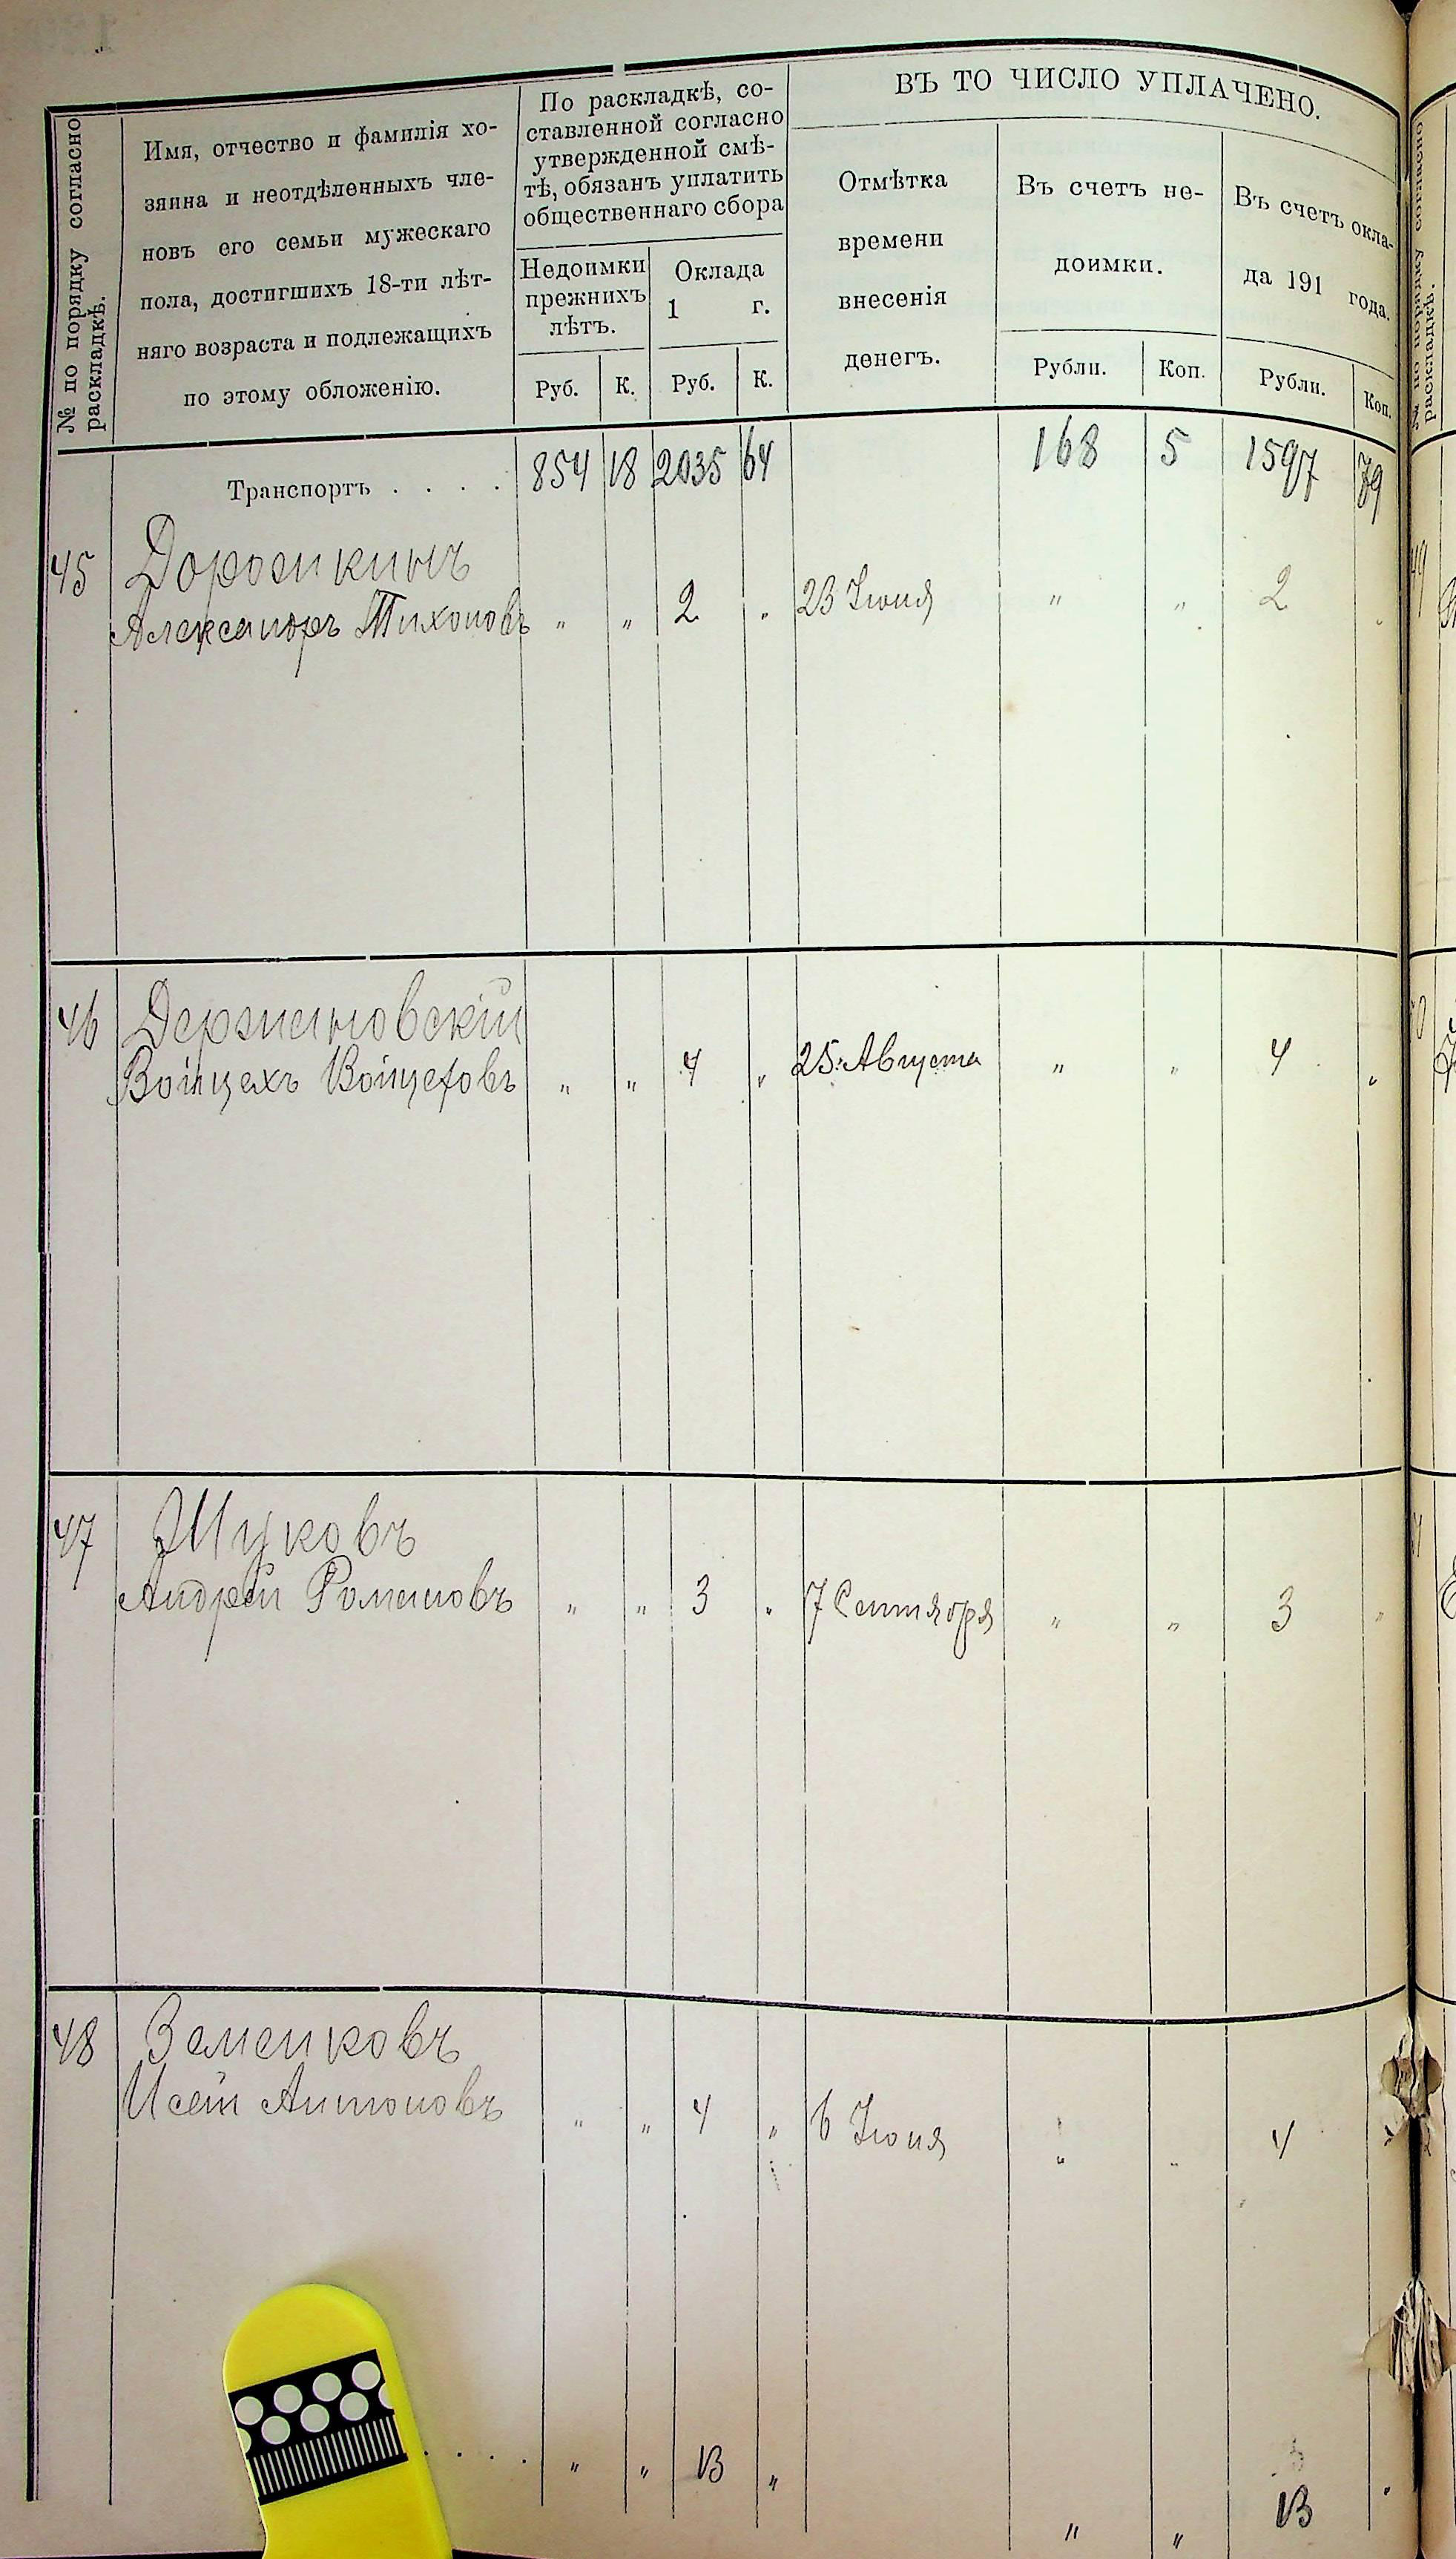 № по порядку согласно
раскладкѣ.
Имя, отчество и фамилія хо-
зяина и неотдѣленныхъ чле-
новъ его семьи мужескаго
пола, достигшихъ 18-ти лѣт-
няго возраста и подлежащихъ
по этому обложенію.
По раскладкѣ, со-
ставленной согласно
утвержденной смѣ-
тѣ, обязанъ уплатить
общественнаго сбора
Недоимки
прежнихъ
лѣтъ.
Оклада
1 г.
Руб. К. Руб. К.
ВЪ ТО ЧИСЛО УПЛАЧЕНО.
Отмѣтка
времени
внесенія
денегъ.
Въ счетъ не-
доимки.
Рубли. Коп.
Въ счетъ окла-
да 191 года.
Рубли. Коп.
Транспортъ . . . . 854 18 2035 64 168 5 1597 79
45 Дорошкинъ
Александръ Тихоновъ " " 2 " 23 Іюня " " 2 "
46 Держановскій
Войцехъ Войцеховъ " " 4 " 25 Августа " " 4 "
47 Жуковъ
Андрей Романовъ " " 3 " 7 Сентября " " 3 "
48 Заменковъ
Исай Антоновъ " " 4 " 6 Іюня " " 4 "
. . . . " " 13 " " " 13 "